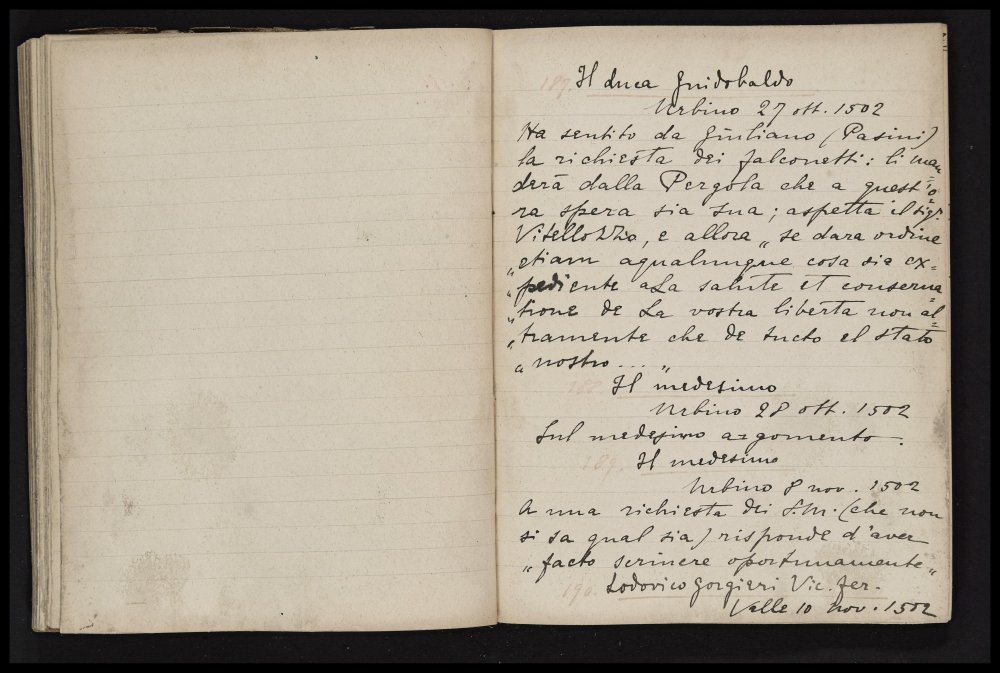 187. Il duca Guidobaldo
Urbino 27 ott. 1502
Ha sentito da Giuliano (Pasini)
la richiesta dei falconetti: li man
derà dalla Pergola che a quest'o
ra spera sia sua; aspetta il sigr.
Vitellozzo, e allora „ se dara ordine
„ etiam aqualunque cosa sia ex=
„ pediente a La salute et conserva
„ tione de La vostra liberta non al=
„ tramente che de tucto el stato
„ nostro ... „
188. Il medesimo
Urbino 28 ott. 1502
Sul medesimo argomento.
189. Il medesimo
Urbino 8 nov. 1502
A una richiesta dei S.M. (che non
si sa qual sia) risponde d'aver
„ facto scrivere oportunamente „
190. Lodovico Gorgieri Vic. fer.
Valle 10 nov. 1502